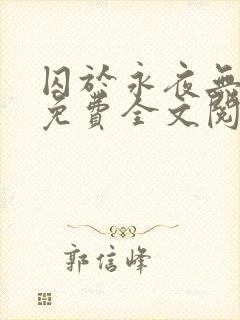 囚於永夜無
免費全文閱
郭信峰